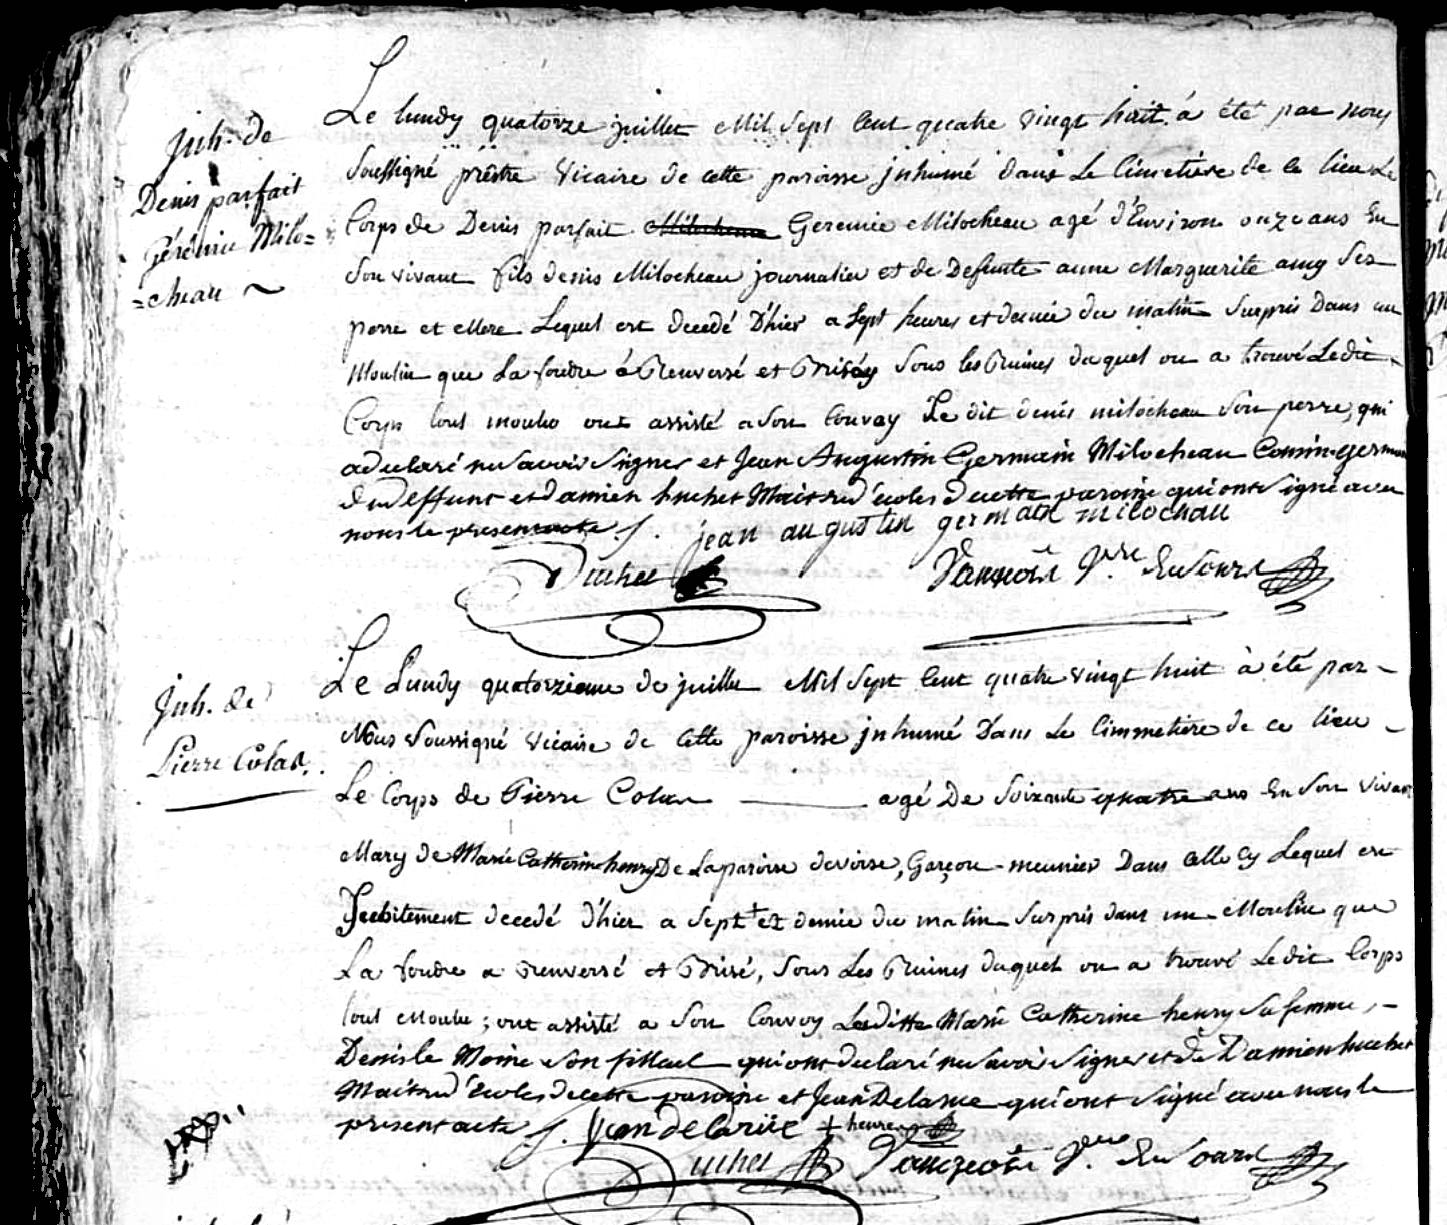 Inh. de
Denis parfait
Gérémie Milo=
=cheau ~
Le lundy quatorze juillet Mil Sept Cent quatre vingt huit á été par nous
Soussigné prêtre Vicaire de cette paroisse jnhumé dans Le Cimetiere de ce lieu Le
Corps de Denis parfait Milocheau Geremie Milocheau agé d'Environ onze ans En
Son vivant fils denis Milocheau journalier et de Defunte anne Marguerite amy Ses
perre et Mere Lequel est decedé D'hier a Sept heures et demie du matin Surpris Dans un
Moulin que La foudre á Renversé et Brisé Sous les Ruines duquel on a trouvé Ledit
Corps tout moulu ont assisté a Son Convoy Le dit denis milocheau Son perre, qui
a declaré ne Savoir Signer et Jean Augustin Germain Milocheau Cousin germain
du deffunt et damien huchet Maitre d'écoles de cette paroisse qui ont Signé avec
nous le present acte ſ.
jean augustin germain milochau
Duchet
Vic.re En Sours
Inh. de
Pierre Colas.
Le Lundy quatorzieme de juillet Mil Sept Cent quatre vingt huit à été par
Nous Soussigné Vicaire de Cette paroisse jnhumé Dans Le Cimmetiere de ce lieu
Le Corps de Pierre Colas agé De Soixante quatre ans En Son vivant
Mary de Marie Catherine henry De La paroisse devoise, Garçon meunier Dans Celle Cy Lequel est
Subitement decedé d'hier a Sept + et demie du matin Surpris dans un Moulin que
La foudre a Renversé et Brisé, Sous Les Ruines duquel on a trouvé Ledit Corps
tout Moulu ; ont assisté a Son Convoy Laditte Marie Catherine henry Sa femme,
Denis le Moine Son filleul qui ont declaré ne Savoir Signer et de Damien huchet
Maitre d'Ecoles de cette paroisse et Jean Delarue qui ont Signé avec nous le
present acte ſ. Jean de Larüe + heures
Duchet
Vic.re En Sours